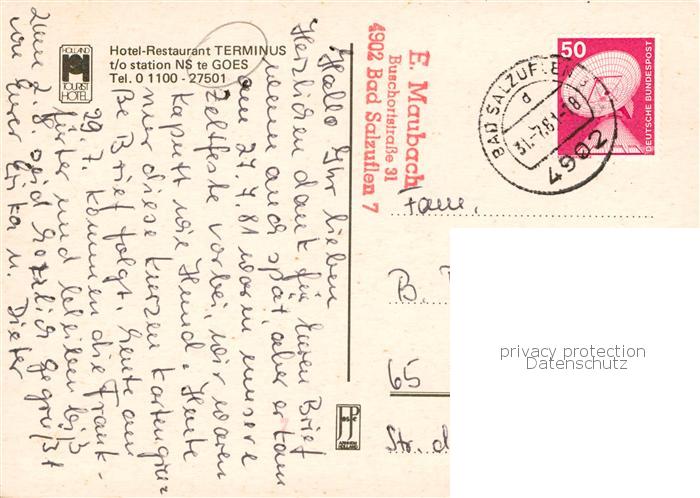 HOLLAND
TOURIST
HOTEL
Hotel-Restaurant TERMINUS
t/o station NS te GOES
Tel. 0 1100 - 27501
Hallo Ihr lieben
Herzlichen dank für Euren Brief
wenn auch spät, aber er kam
am 27.7.81 waren unsere
Zeltfeste vorbei, wir waren
kaputt wie Hund. Heute
nur diese kurzen Kartengrüsse
Brief folgt. Heute am
29.7. kommen die Frank-
furter und bleiben bis
zum 2.8 seid herzlich gegrüßt
von Eurer Erika u. Dieter
E. Maubach
Buschortstraße 31
4902 Bad Salzuflen 7
50
DEUTSCHE BUNDESPOST
BAD SALZUFLEN
d
31.-7.81-8
4902
Fam.
B.
65
Str. d
JosPé
ARNHEM
HOLLAND
privacy protection
Datenschutz